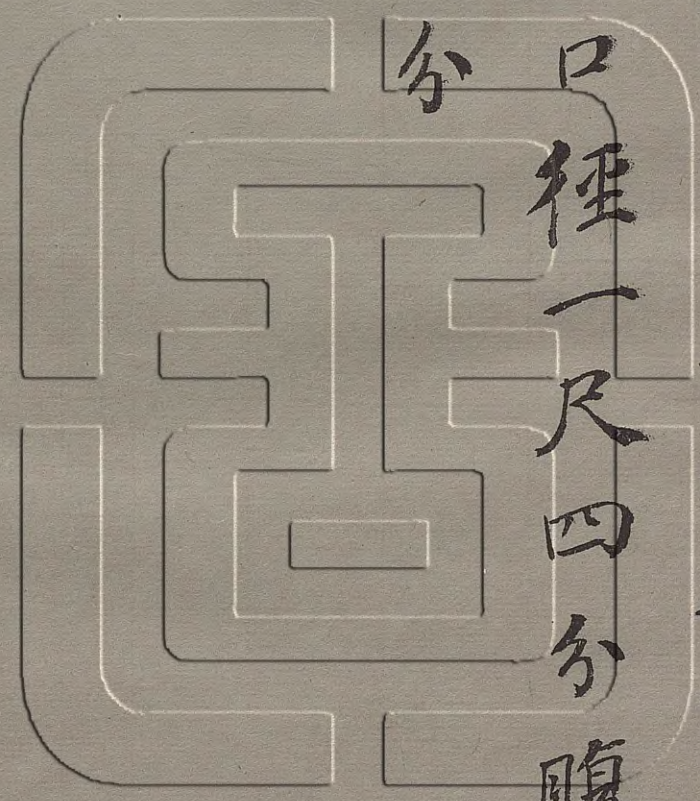 口徑一尺四分腹
分